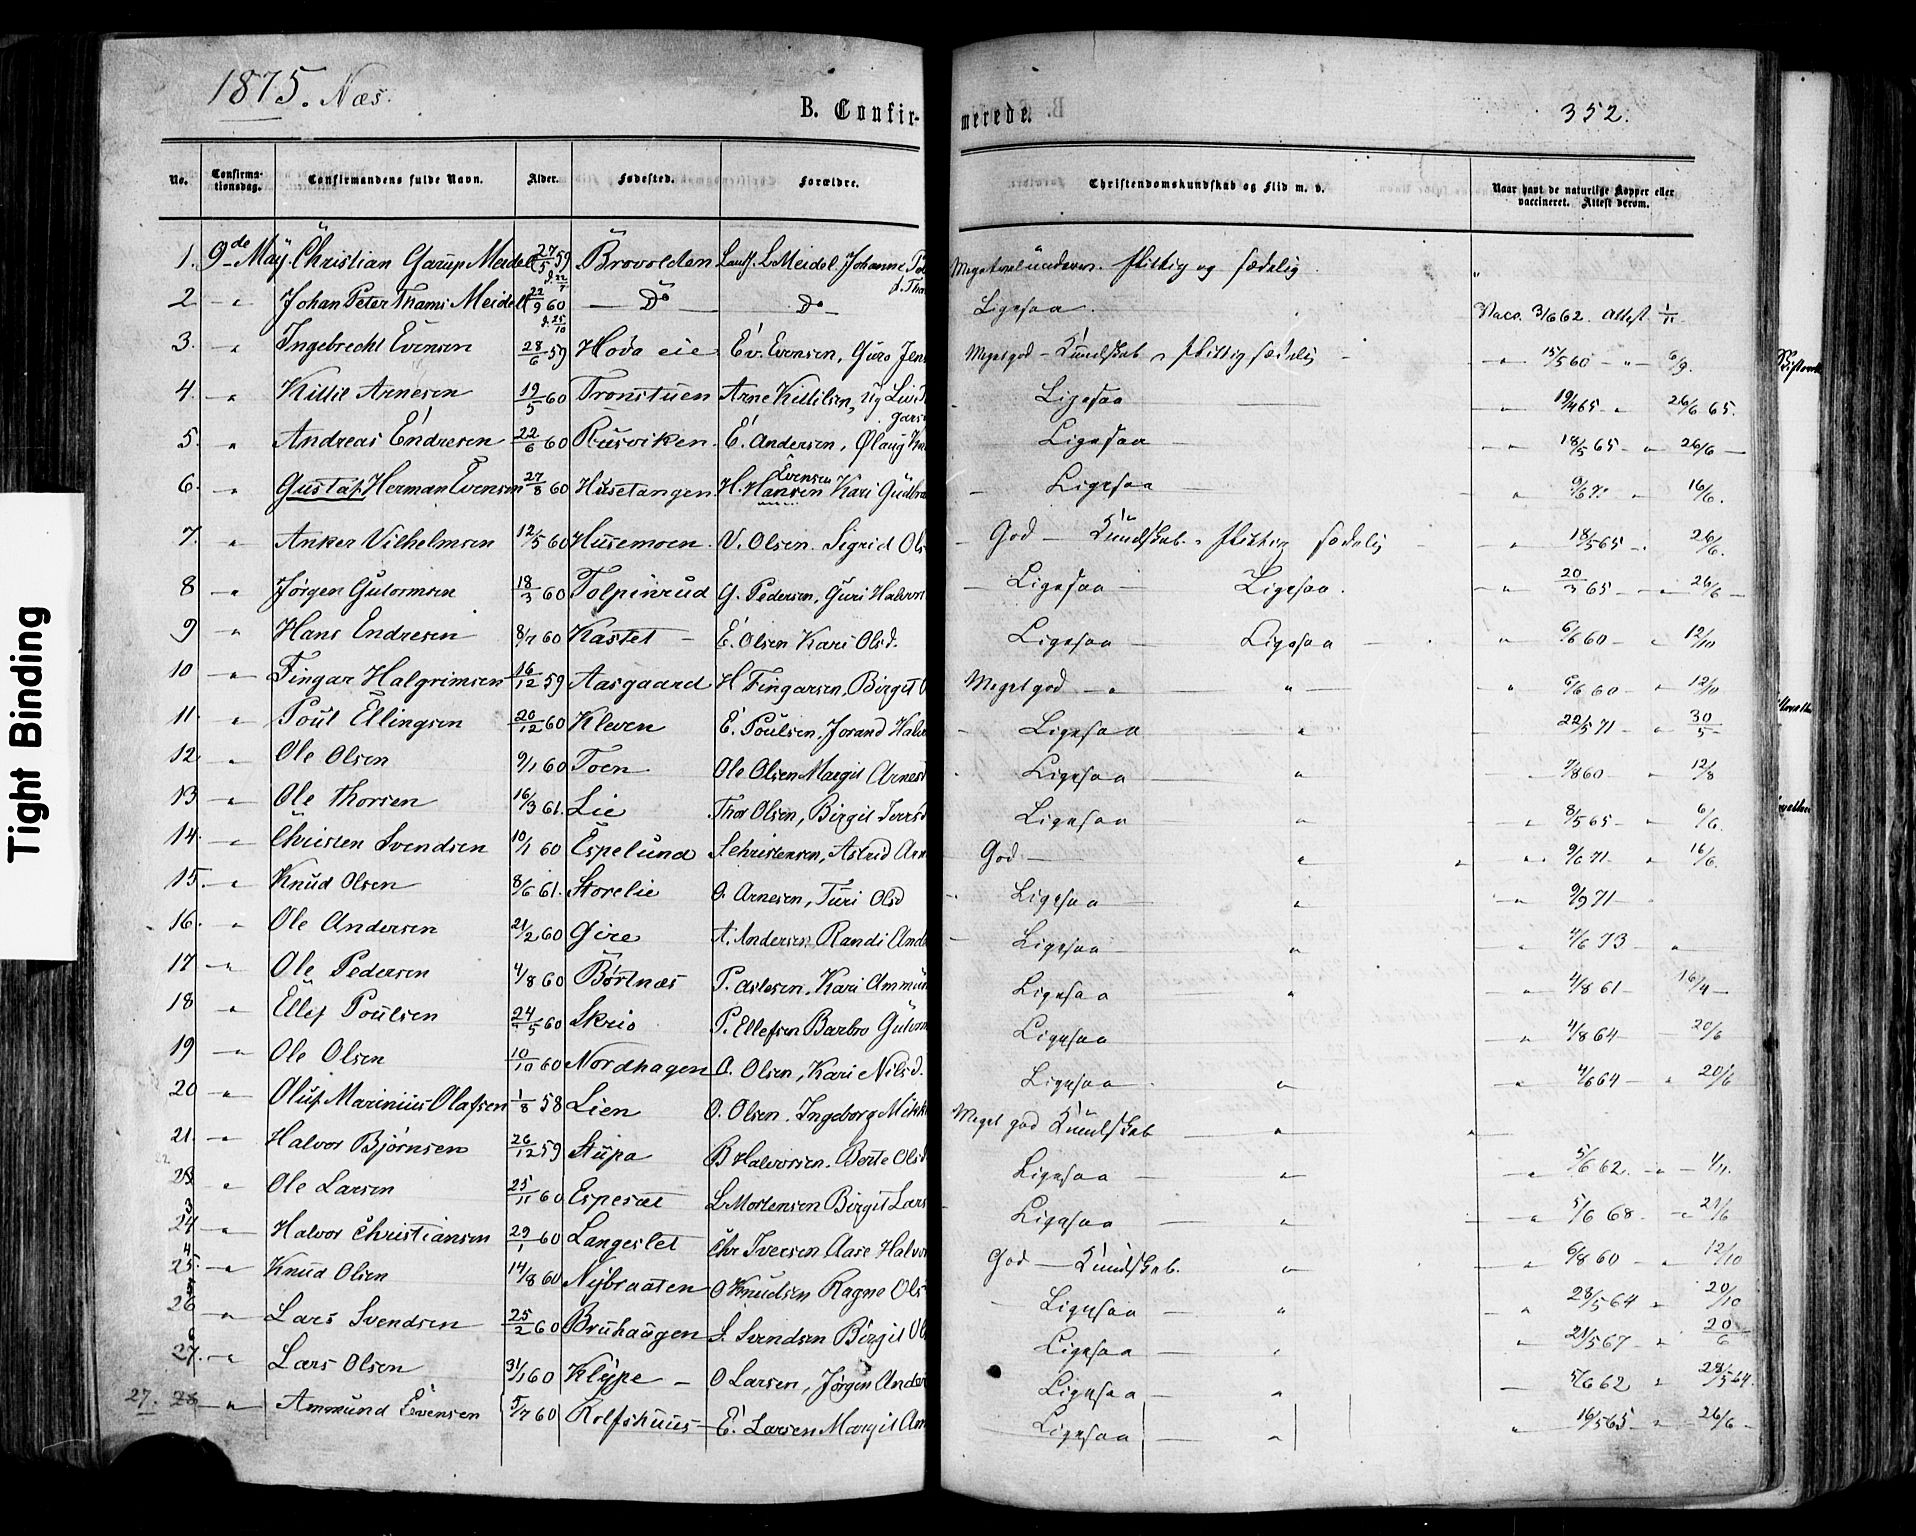 1875. Næs.
B. Confir-
merede.
352.
No. Confirma-tionsdag. Confirmandens fulde Navn. Alder. Fødested. Forældre. Christendomskundskab og Flid m. v. Naar havt de naturlige Kopper eller vaccineret. Attest derom.
1. 9de May Christian Garup Meidell 27/5 59 Brovolden L. Meidel. Johanne flittig og sædelig "
2 " Johan Peter Thams Meidell 22/9 60 Do Do Ligesaa. Vacc. 3/6 62. Attest 1/11
3. " Ingebrecht Evensen 28/6 59 Hova eie Ev. Evensen, Guro Jen Meget god Kundskab flittig sædelig " 15/5 60 " 6/9.
4. " Kittil Arnesen 19/5 60 Tronstuen Arne Kittilsen, Ligesaa " 19/4 65 " 26/6 65.
5. " Andreas Endresen 22/6 60 Rusviken E. Andersen, Ølaug Ligesaa " 18/5 65 " 26/6
6. " Gustaf Herman Evensen 27/8 60 Husetangen H. Hansen Evensen Kari Gudbra Ligesaa " 9/6 71 " 16/6.
7. " Anker Vilhelmsen 12/5 60 Husemoen V. Olsen. Sigrid Ols God Kundskab. flittig sædelig " 18/5 65 " 26/6.
8 " Jørgen Gulormsen 18/3 60 Tolpinrud G. Pedersen, Guri Halvor Ligesaa Ligesaa. " 20/3 65 " 26/6
9 " Hans Endresen 8/7 60 Kastet E. Olsen Kari Olsd. Ligesaa Ligesaa " 6/6 60 " 12/10
10 " Fingar Halgrimsen 16/12 59 Aasgaard H Fingarsen, Birgit Meget god " " " 6/6 60 " 12/10
11. " Poul Ellingsen 20/12 60 Kleven E. Poulsen, Jorand Halv Ligesaa " " 22/5 71 " 30/5
12. " Ole Olsen 9/1 60 Toen Ole Olsen Margit Arnesd Ligesaa " " 7/8 60 " 12/8
13 " Ole Thorsen 16/3 61. Lie Thor Olsen, Birgit Iversd Ligesaa " " 8/5 65 " 6/6.
14. " Christen Svendsen 10/1 60 Espelund S. Christensen, Astrid Arn God " " 9/6 71 " 16/6.
15. " Knud Olsen 8/6 61. Storelie O. Arnesen, Turi Olsd Ligesaa " " 9/9 71
16. " Ole Andersen 21/2 60 Gire A. Andersen Randi Ande Ligesaa " " 4/6 73 "
17 " Ole Pedersen 4/8 60 Børtnæs P. Kari Ammun Ligesaa " " 4/8 61 16/4
18 " Ellef Poulsen 24/5 60 Skrio P. Ellefsen Barbro Gulorm Ligesaa " 4/8 64 20/6
19 " Ole Olsen 10/10 60 Nordhagen O. Olsen, Kari Nilsd. Ligesaa " " 4/6 64 " 20/6
20 " Oluf Marinius Olafsen 1/8 58 Lien O. Olsen. Ingeborg Mikk Meget god Kundskab " "
21. " Halvor Bjørnsen 26/12 59 Stupa B Halvorsen. Berte Olsd Ligesaa " " 5/6 62. " 4/11
22 " Ole Larsen 25/11 60 Espeset L. Mortensen Birgit Lars Ligesaa " " 5/6 68 " 21/6
24 3 " Halvor Christiansen 29/1 60 Langeslet Chr Iversen Aase Halvor God Kundskab. " " 6/8 60 " 12/10
25. 4 " Knud Olsen 14/8 60 Nybraaten O Knudsen Ragne Ols Ligesaa " " 28/5 64 " 20/10
26 5 " Lars Svendsen 25/2 60 Bruhaugen S. Svendsen Birgit Ol Ligesaa " " 21/5 67 " 20/6
27. 6 " Lars Olsen 31/1 60 Klype O Larsen, Jørgen Ander Ligesaa " 5/6 62 " 28/5 64.
27. 28 " Ammund Evensen 5/7 60 Rolfshuus E. Larsen Margit Am Ligesaa " " 16/5 65 " 26/6
Tight Binding